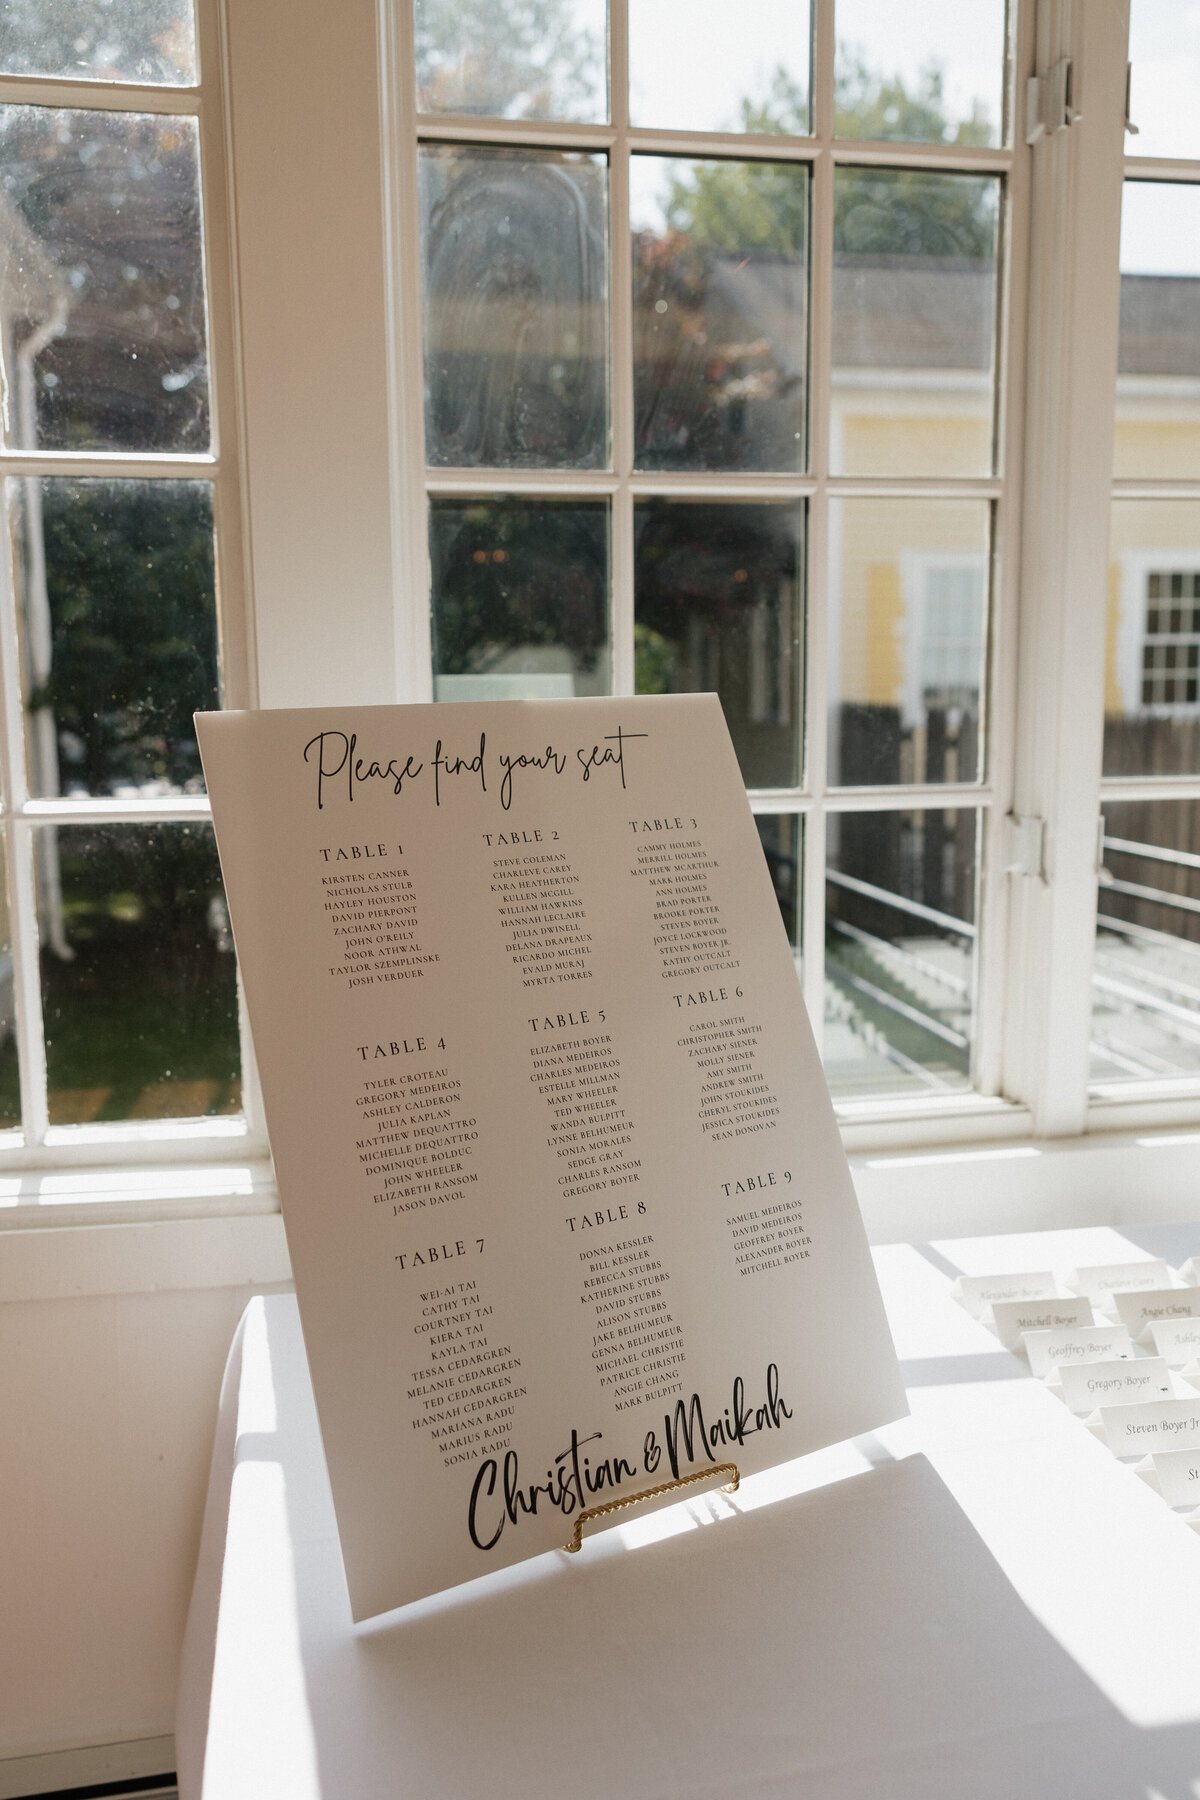 Please find your seat
TABLE 1
KIRSTEN CANNER
NICHOLAS STULB
HAYLEY HOUSTON
DAVID PIERPONT
ZACHARY DAVID
JOHN O'REILY
NOOR ATHWAL
TAYLOR SZEMPLINSKE
JOSH VERDUER
TABLE 2
STEVE COLEMAN
CHARLEVE CAREY
KARA HEATHERTON
KULLEN MCGILL
WILLIAM HAWKINS
HANNAH LECLAIRE
JULIA DWINELL
DELANA DRAPEAUX
RICARDO MICHEL
EVALD MURAJ
MYRTA TORRES
TABLE 3
CAMMY HOLMES
MERRILL HOLMES
MATTHEW MCARTHUR
MARK HOLMES
ANN HOLMES
BRAD PORTER
BROOKE PORTER
STEVEN BOYER
JOYCE LOCKWOOD
STEVEN BOYER JR.
KATHY OUTCALT
GREGORY OUTCALT
TABLE 4
TYLER CROTEAU
GREGORY MEDEIROS
ASHLEY CALDERON
JULIA KAPLAN
MATTHEW DEQUATTRO
MICHELLE DEQUATTRO
DOMINIQUE BOLDUC
JOHN WHEELER
ELIZABETH RANSOM
JASON DAVOL
TABLE 5
ELIZABETH BOYER
DIANA MEDEIROS
CHARLES MEDEIROS
ESTELLE MILLMAN
MARY WHEELER
TED WHEELER
WANDA BULPITT
LYNNE BELHUMEUR
SONIA MORALES
SEDGE GRAY
CHARLES RANSOM
GREGORY BOYER
TABLE 6
CAROL SMITH
CHRISTOPHER SMITH
ZACHARY SIENER
MOLLY SIENER
AMY SMITH
ANDREW SMITH
JOHN STOUKIDES
CHERYL STOUKIDES
JESSICA STOUKIDES
SEAN DONOVAN
TABLE 7
WEI-AI TAI
CATHY TAI
COURTNEY TAI
KIERA TAI
KAYLA TAI
TESSA CEDARGREN
MELANIE CEDARGREN
TED CEDARGREN
HANNAH CEDARGREN
MARIANA RADU
MARIUS RADU
SONIA RADU
TABLE 8
DONNA KESSLER
BILL KESSLER
REBECCA STUBBS
KATHERINE STUBBS
DAVID STUBBS
ALISON STUBBS
JAKE BELHUMEUR
GENNA BELHUMEUR
MICHAEL CHRISTIE
PATRICE CHRISTIE
ANGIE CHANG
MARK BULPITT
TABLE 9
SAMUEL MEDEIROS
DAVID MEDEIROS
GEOFFREY BOYER
ALEXANDER BOYER
MITCHELL BOYER
Christian & Maikah
Alexander Boyer
Charleve Carey
Mitchell Boyer
Angie Chang
Geoffrey Boyer
Ashley
Gregory Boyer
Steven Boyer Jr
St